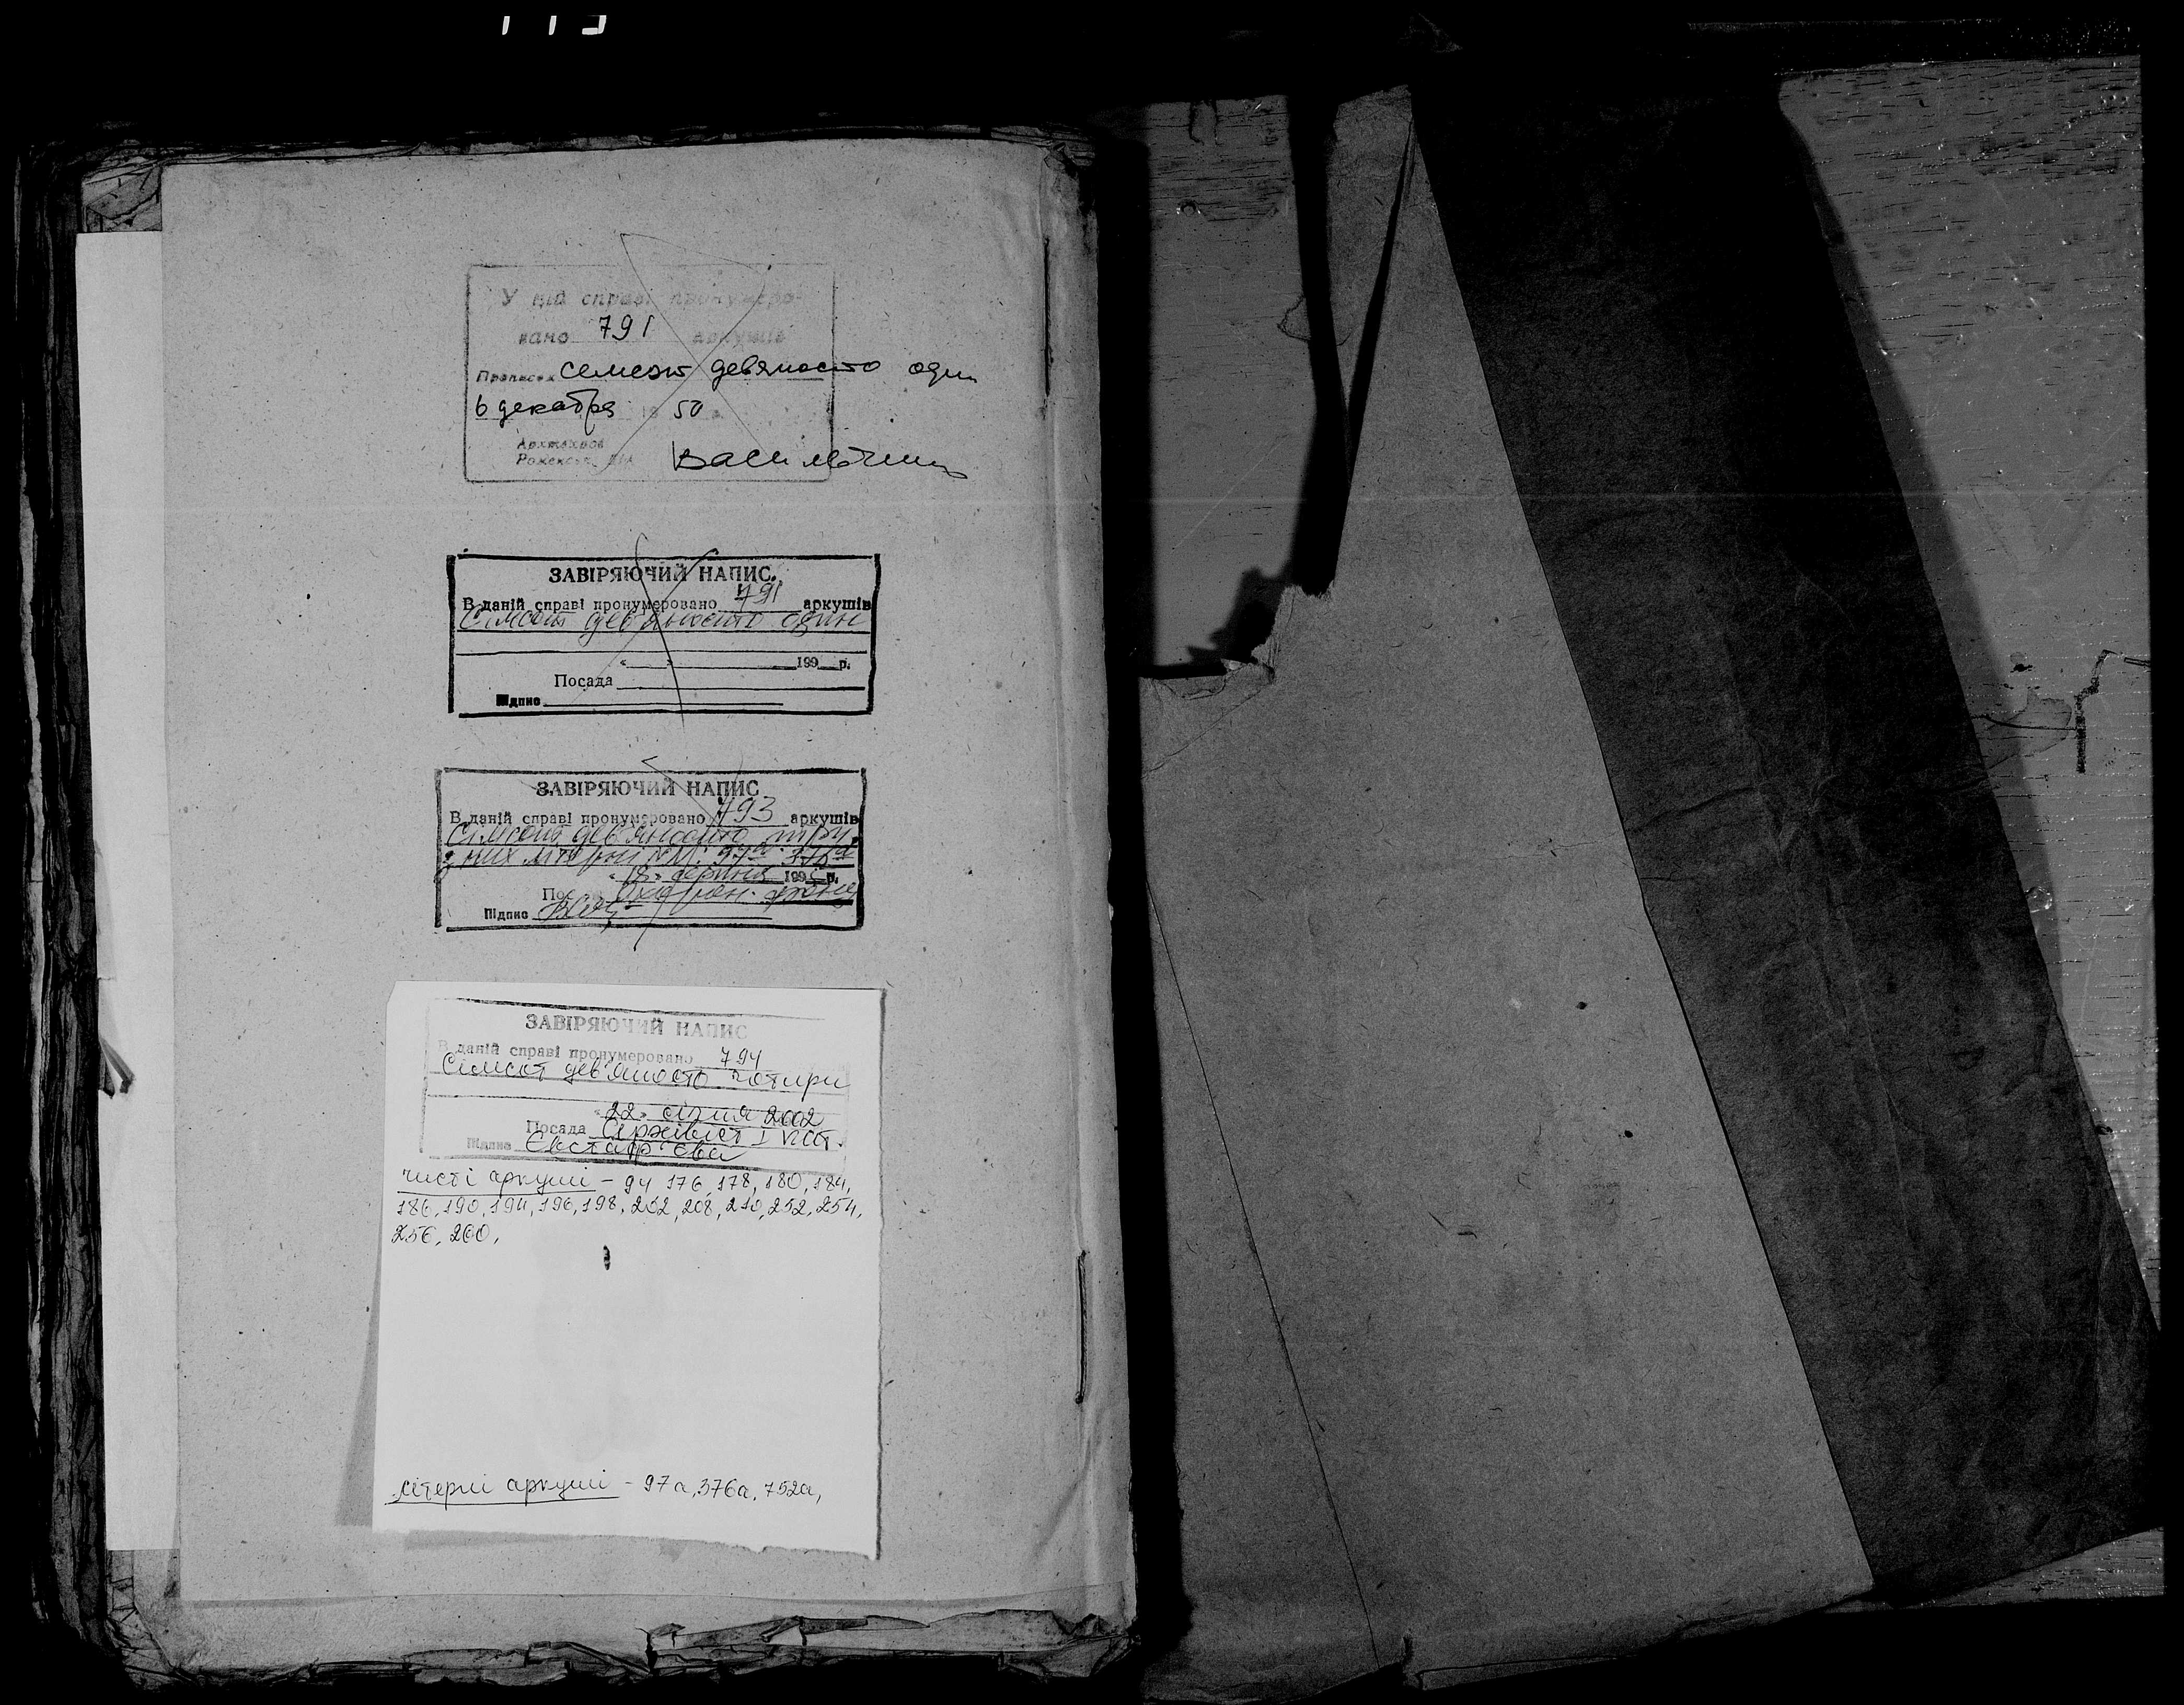 У цій справі пронумеро-
вано 791 аркушів
Прописом семсот девяносто один
6 декабря 19 50
ЗАВІРЯЮЧИЙ НАПИС.
В даній справі пронумеровано 791 аркушів
Сімсот дев'яносто один
« » 199 р.
Посада
Підпис
ЗАВІРЯЮЧИЙ НАПИС
В даній справі пронумеровано 793 аркушів
Сімсот дев'яносто три,
з них літерні 97а 376а
«18» серпня 199 р.
Пос
Підпис
ЗАВІРЯЮЧИЙ НАПИС
В даній справі пронумеровано 794
Сімсот дев'яносто чотири
«22» січня 2002
Посада Архівіст І кат.
Підпис Євстаф'єва
чисті аркуші - 94 176, 178, 180, 184,
186, 190, 194, 196, 198, 202, 208, 210, 252, 254,
256, 260,
літерні аркуші - 97а, 376а, 752а,